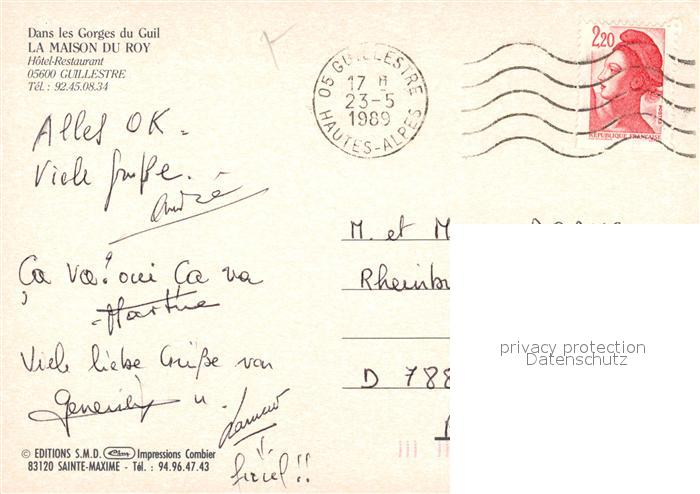 Dans les Gorges du Guil
LA MAISON DU ROY
Hôtel-Restaurant
05600 GUILLESTRE
Tél. : 92.45.08.34
05 GUILLESTRE
17 H
23-5
1989
HAUTES-ALPES
2,20
POSTES
REPUBLIQUE FRANÇAISE
Alles OK.
Viele Grüße.
André
M. et M
Rheinbr
Ça va? oui Ça va
Martine
Viele liebe Grüße von
Geneviève u.
D 788
privacy protection
Datenschutz
© EDITIONS S.M.D. Cim Impressions Combier
83120 SAINTE-MAXIME - Tél. : 94.96.47.43